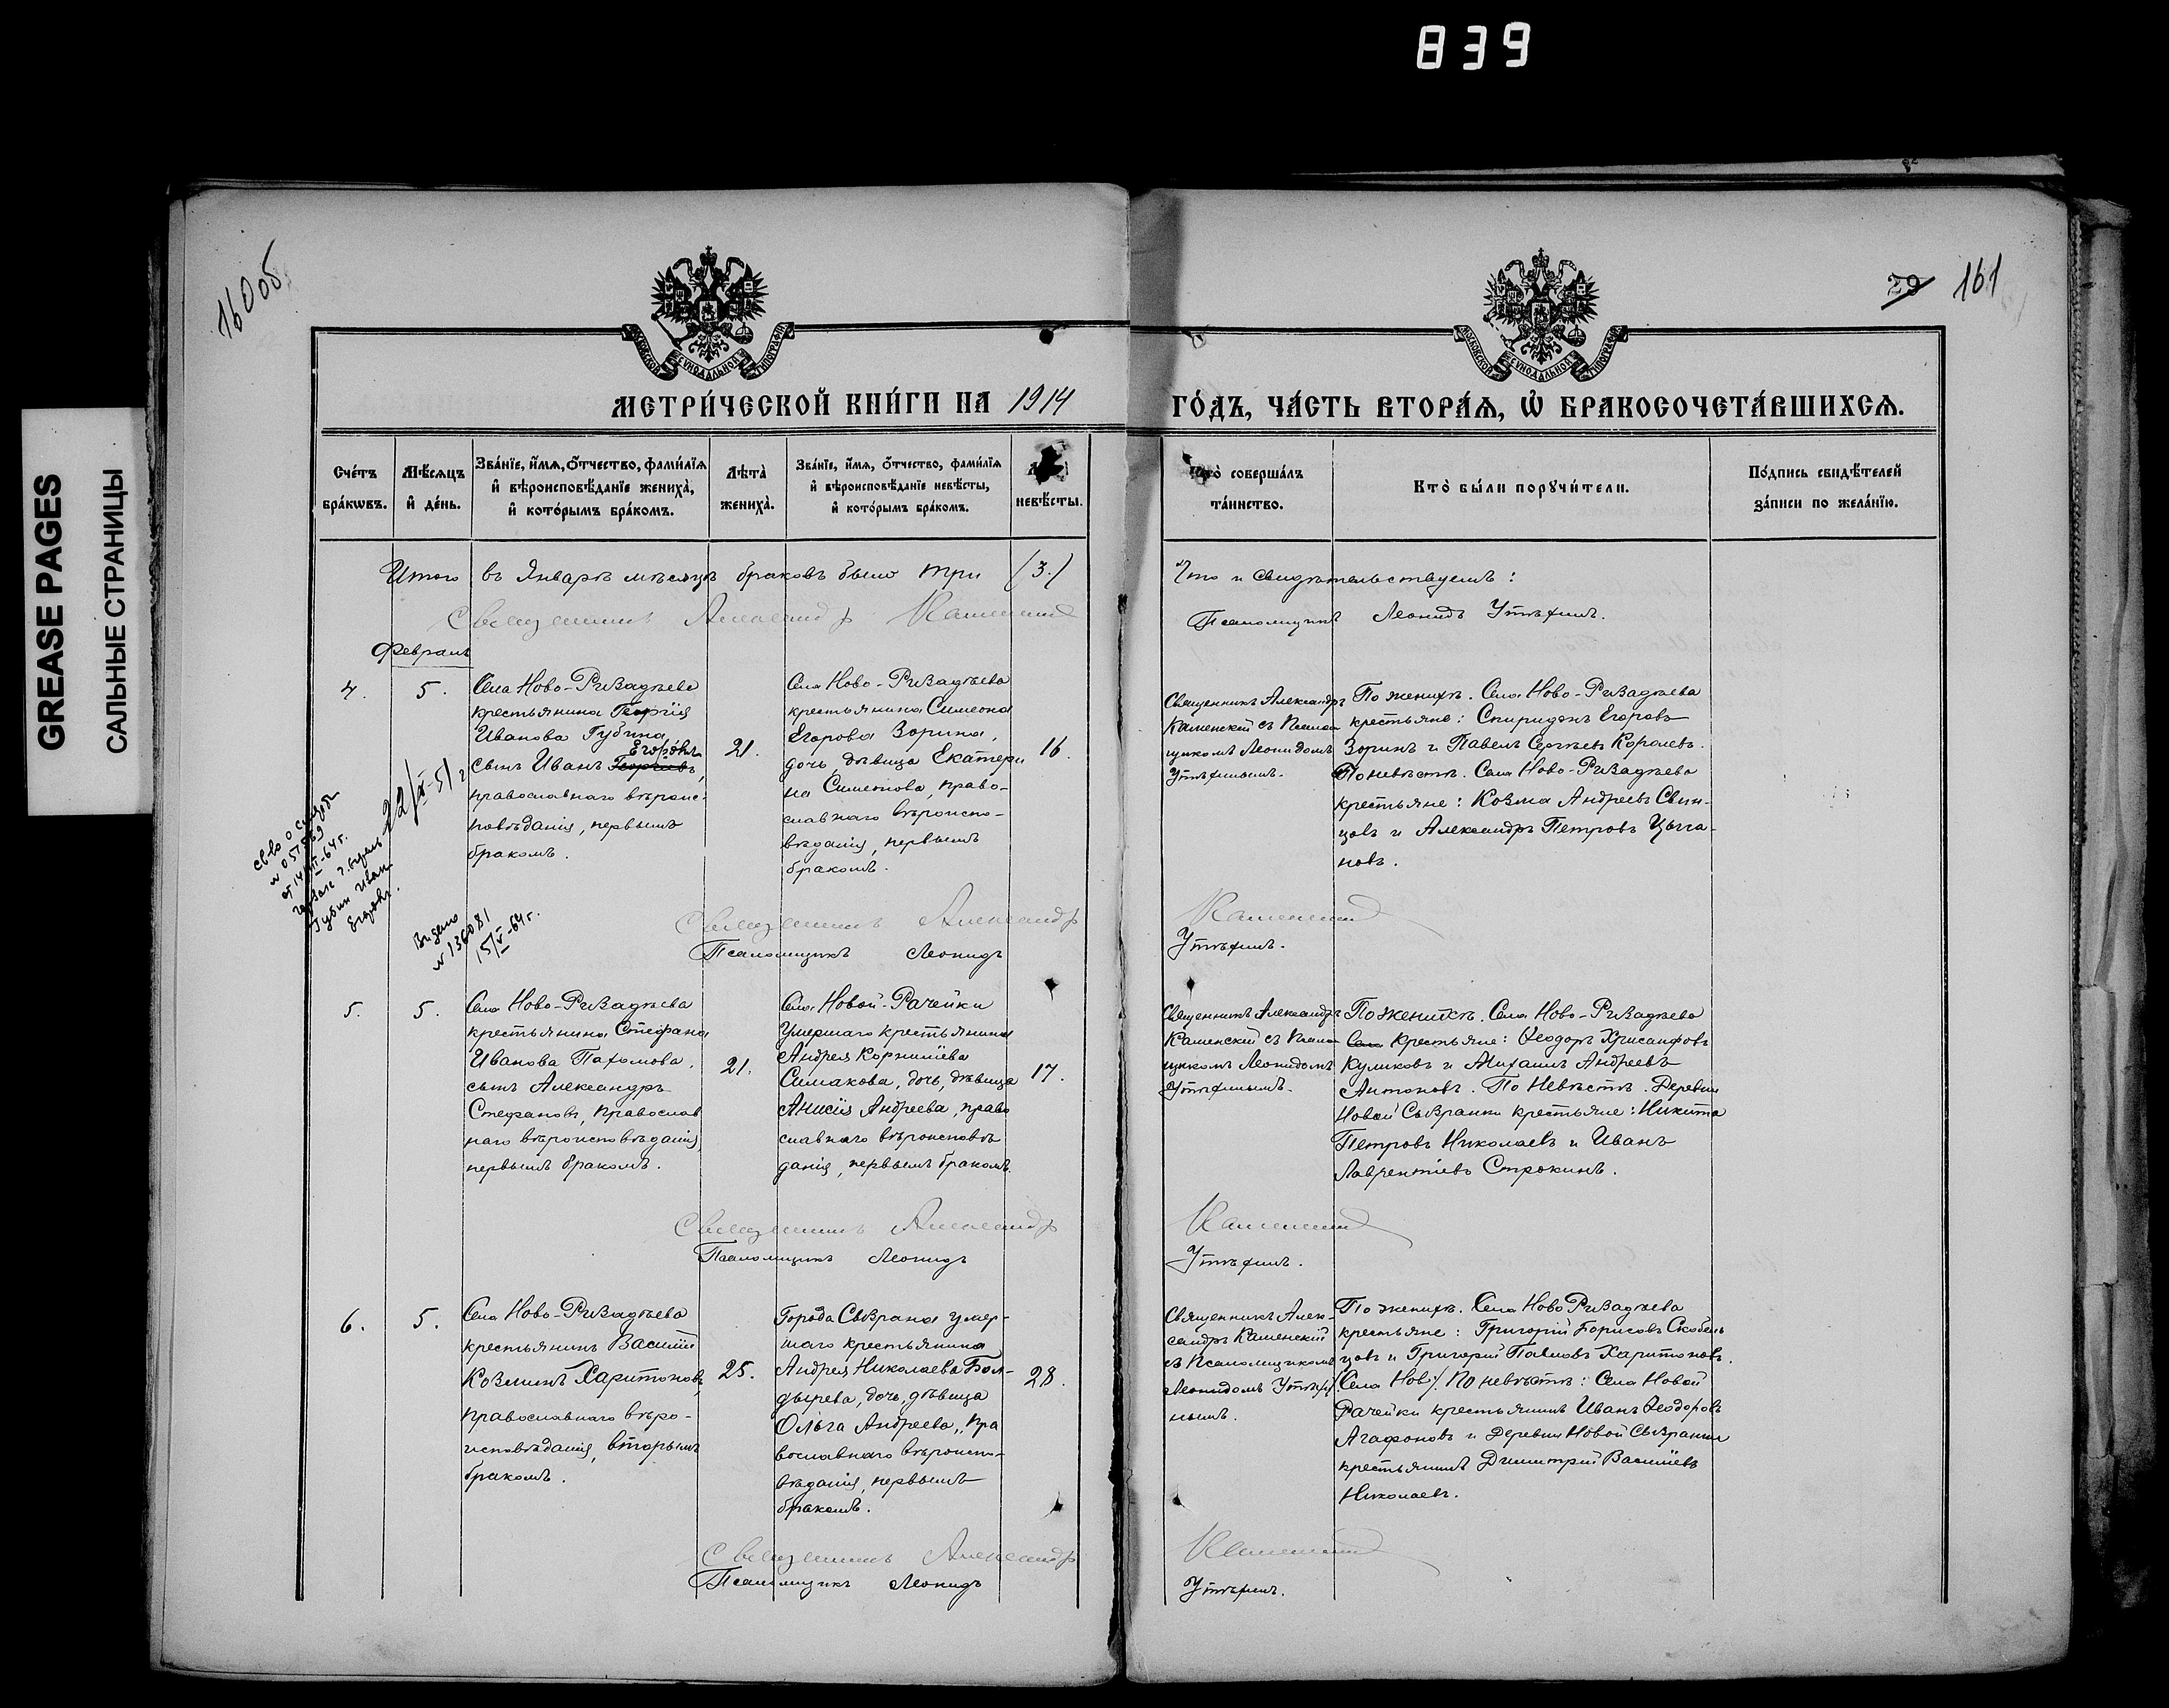 839
GREASE PAGES
САЛЬНЫЕ СТРАНИЦЫ
160об
29 161
МЕТРИ́ЧЕСКОЙ КНИ́ГИ НА 1914
ГО́ДЪ, ЧА́СТЬ ВТОРА́Я, Ѡ БРАКОСОЧЕТА́ВШИХСЯ.
Сче́тъ
бра́кѡвъ.
Мѣ́сяцъ
и҆ де́нь.
Зва́нїе, и҆́мя, ѻ҆́тчество, фами́лїя
и҆ вѣроисповѣ́данїе жениха̀,
и҆ кото́рымъ бра́комъ.
Лѣта̀
жениха̀.
Зва́нїе, и҆́мя, ѻ҆́тчество, фами́лїя
и҆ вѣроисповѣ́данїе невѣ́сты,
и҆ кото́рымъ бра́комъ.
невѣ́сты.
Кто̀ соверша́лъ
та́инство.
Кто̀ бы́ли порꙋчи́тели.
По́дпись свидѣ́телей
за́писи по жела́нїю.
Итого въ Январѣ мѣсяцѣ браковъ было три (3.)
Что и свидѣтельствуемъ:
Священникъ Александръ Каменскій
Псаломщикъ Леонидъ Утѣхинъ.
Февраль
4.
5.
Села Ново-Рязадѣева
крестьянина Георгія
Иванова Губина
Егоровъ
сынъ Иванъ Георгіевъ,
православнаго вѣроис-
повѣданія, первымъ
бракомъ.
21.
Села Ново-Рязадѣева
крестьянина Симеона
Егорова Зорина,
дочь, дѣвица Екатери
на Симеонова, право-
славнаго вѣроиспо-
вѣданія, первымъ
бракомъ.
16.
Священникъ Александръ
Каменскій съ Псалом
щикомъ Леонидомъ
Утѣхинымъ.
По женихѣ. Села Ново-Рязадѣева
крестьяне: Спиридонъ Егоровъ
Зоринъ и Павелъ Сергѣевъ Королевъ.
По невѣстѣ. Села Ново-Рязадѣева
крестьяне: Козма Андреевъ Свин-
цовъ и Александръ Петровъ Цыга-
новъ.
22/IX-51 г
св-во о
N 051569
Губин Иван
Егоров.
Выдано
N 136081
15/V-64г.
Священникъ Александръ
Каменскій
Псаломщикъ Леонидъ
Утѣхинъ.
5.
5.
Села Ново-Рязадѣева
крестьянина Стефана
Иванова Пахомова,
сынъ Александръ
Стефановъ, православ
наго вѣроисповѣданія,
первымъ бракомъ.
21.
Села Новой-Рачейки
умершаго крестьянина
Андрея Корнилиева
Симакова, дочь, дѣвица
Анисія Андреева, право
славнаго вѣроисповѣ
данія, первымъ бракомъ.
17.
Священникъ Александръ
Каменскій съ Псалом
щикомъ Леонидомъ
Утѣхинымъ.
По женихѣ. Села Ново-Рязадѣева
Села крестьяне: Ѳеодоръ Хрисанфовъ
Куликовъ и Михаилъ Андреевъ
Антоновъ. По невѣстѣ. Деревни
Новой Сызрани крестьяне: Никита
Петровъ Николаевъ и Иванъ
Лаврентіевъ Строкинъ.
Священникъ Александръ
Каменскій
Псаломщикъ Леонидъ
Утѣхинъ.
6.
5.
Села Ново-Рязадѣева
крестьянинъ Василій
Козминъ Харитоновъ,
православнаго вѣро-
исповѣданія, вторымъ
бракомъ.
25.
Города Сызрана умер-
шаго крестьянина
Андрея Николаева Бол-
дырева, дочь, дѣвица
Ольга Андреева, пра
вославнаго вѣроиспо-
вѣданія, первымъ
бракомъ.
28.
Священникъ Алек-
сандръ Каменскій
съ Псаломщикомъ
Леонидомъ Утѣхи
нымъ.
По женихѣ. Села Ново Рязадѣева
крестьяне: Григорій Борисовъ Скобель
цовъ и Григорій Павловъ Харитоновъ.
(Села Нов). По невѣстѣ: Села Новой
Рачейки крестьянинъ Иванъ Ѳеодоровъ
Агафоновъ и деревни Новой Сызрани
крестьянинъ Димитрій Василіевъ
Николаевъ.
Священникъ Александръ
Каменскій
Псаломщикъ Леонидъ
Утѣхинъ.